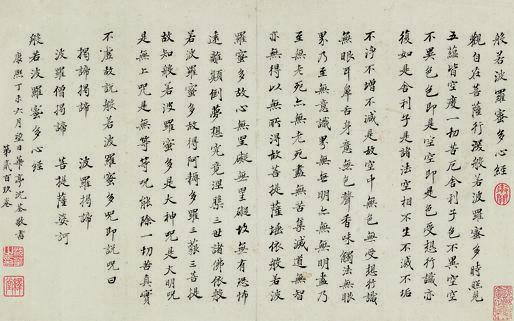 般若波羅蜜多心經
觀自在菩薩行深般若波羅蜜多時照見
五蘊皆空度一切苦厄舍利子色不異空空
不異色色即是空空即是色受想行識亦
復如是舍利子是諸法空相不生不滅不垢
不淨不增不減是故空中無色無受想行識
無眼耳鼻舌身意無色聲香味觸法無眼
界乃至無意識界無無明亦無無明盡乃
至無老死亦無老死盡無苦集滅道無智
亦無得以無所得故菩提薩埵依般若波
羅蜜多故心無罣礙無罣礙故無有恐怖
遠離顛倒夢想究竟涅槃三世諸佛依般
若波羅蜜多故得阿耨多羅三藐三菩提
故知般若波羅蜜多是大神咒是大明咒
是無上咒是無等等咒能除一切苦真實
不虛故說般若波羅蜜多咒即說咒曰
揭諦揭諦 波羅揭諦
波羅僧揭諦 菩提薩婆訶
般若波羅蜜多心經
康熙丁未六月望日華亭沈荃敬書
第貳百玖卷